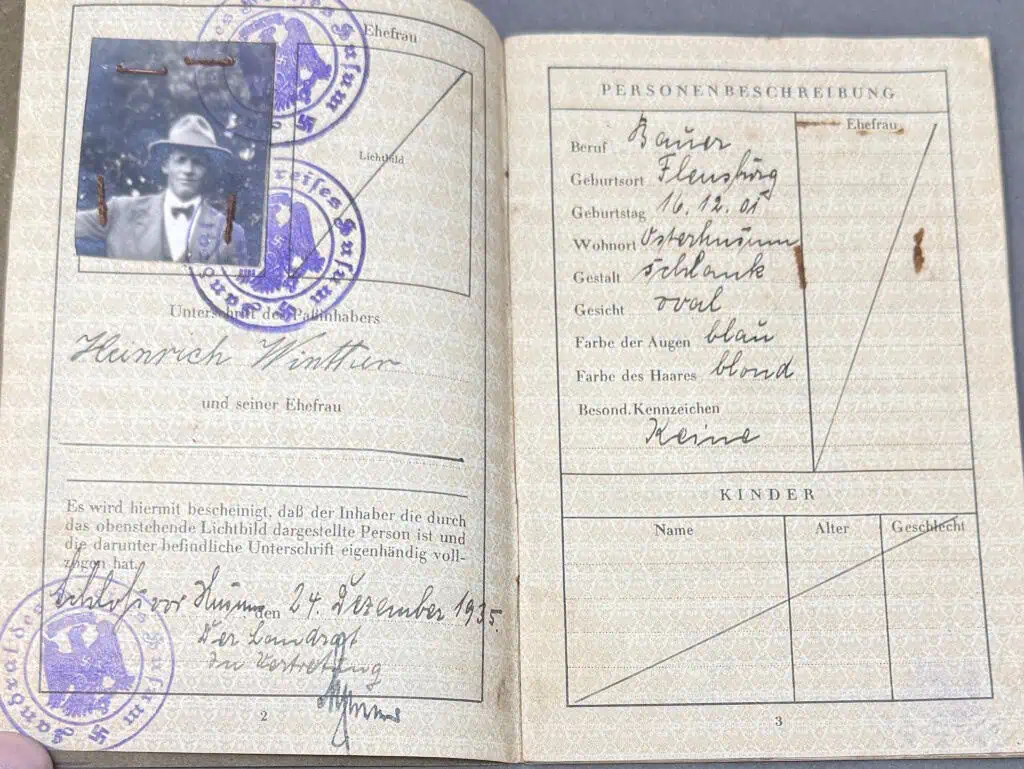 Ehefrau
Lichtbild
Unterschrift des Paßinhabers
Heinrich
und seiner Ehefrau
Es wird hiermit bescheinigt, daß der Inhaber die durch
das obenstehende Lichtbild dargestellte Person ist und
die darunter befindliche Unterschrift eigenhändig voll-
zogen hat.
Schloß vor Husum, den 24. Dezember 1935.
Der Landrat
In Vertretung
2
PERSONENBESCHREIBUNG
Ehefrau
Beruf Bauer
Geburtsort Flensburg
Geburtstag 16.12.01
Wohnort Osterhusum
Gestalt schlank
Gesicht oval
Farbe der Augen blau
Farbe des Haares blond
Besond. Kennzeichen
Keine
KINDER
Name Alter Geschlecht
3